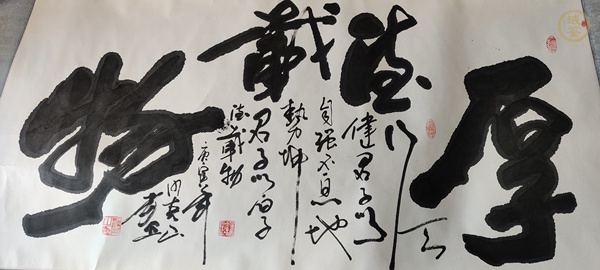 厚德載物
天
行
健君子以
自强不息地
勢坤
君子以厚
德載物
庚寅年